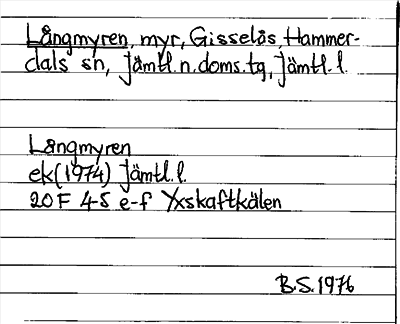 Långmyren, myr, Gisselås, Hammer-
dals sn, Jämtl.n.doms.tg, Jämtl.l.
Långmyren
ek(1974) Jämtl.l.
20F 4-5 e-f Yxskaftkälen
B.S.1976